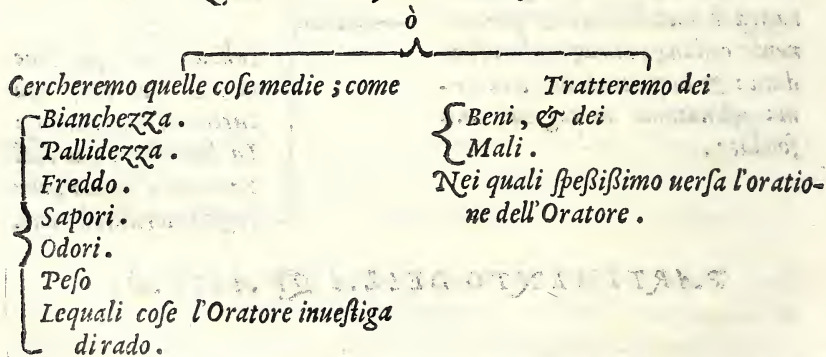 ò
Cercheremo quelle coſe medie ; come
Bianchezza .
Pallidezza .
Freddo .
Sapori .
Odori .
Peſo
Lequali coſe l'Oratore inueſtiga
di rado .
Tratteremo dei
Beni , & dei
Mali .
Nei quali ſpeßißimo uerſa l'oratio-
ne dell'Oratore .